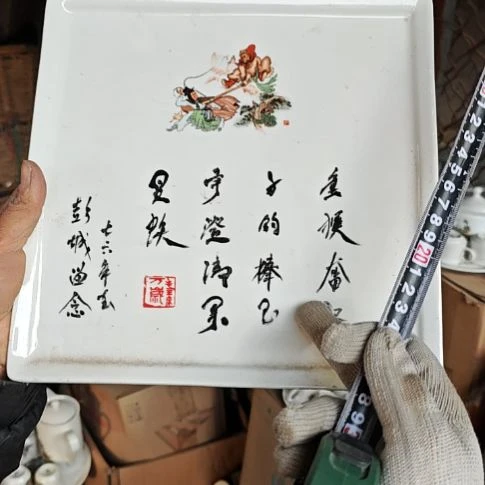 金猴奮
千钧棒玉
宇澄清萬
里埃
七六年于
彭城留念
万歲
1 2 3 4 5 6 7 8 9 20 1 2 3 4